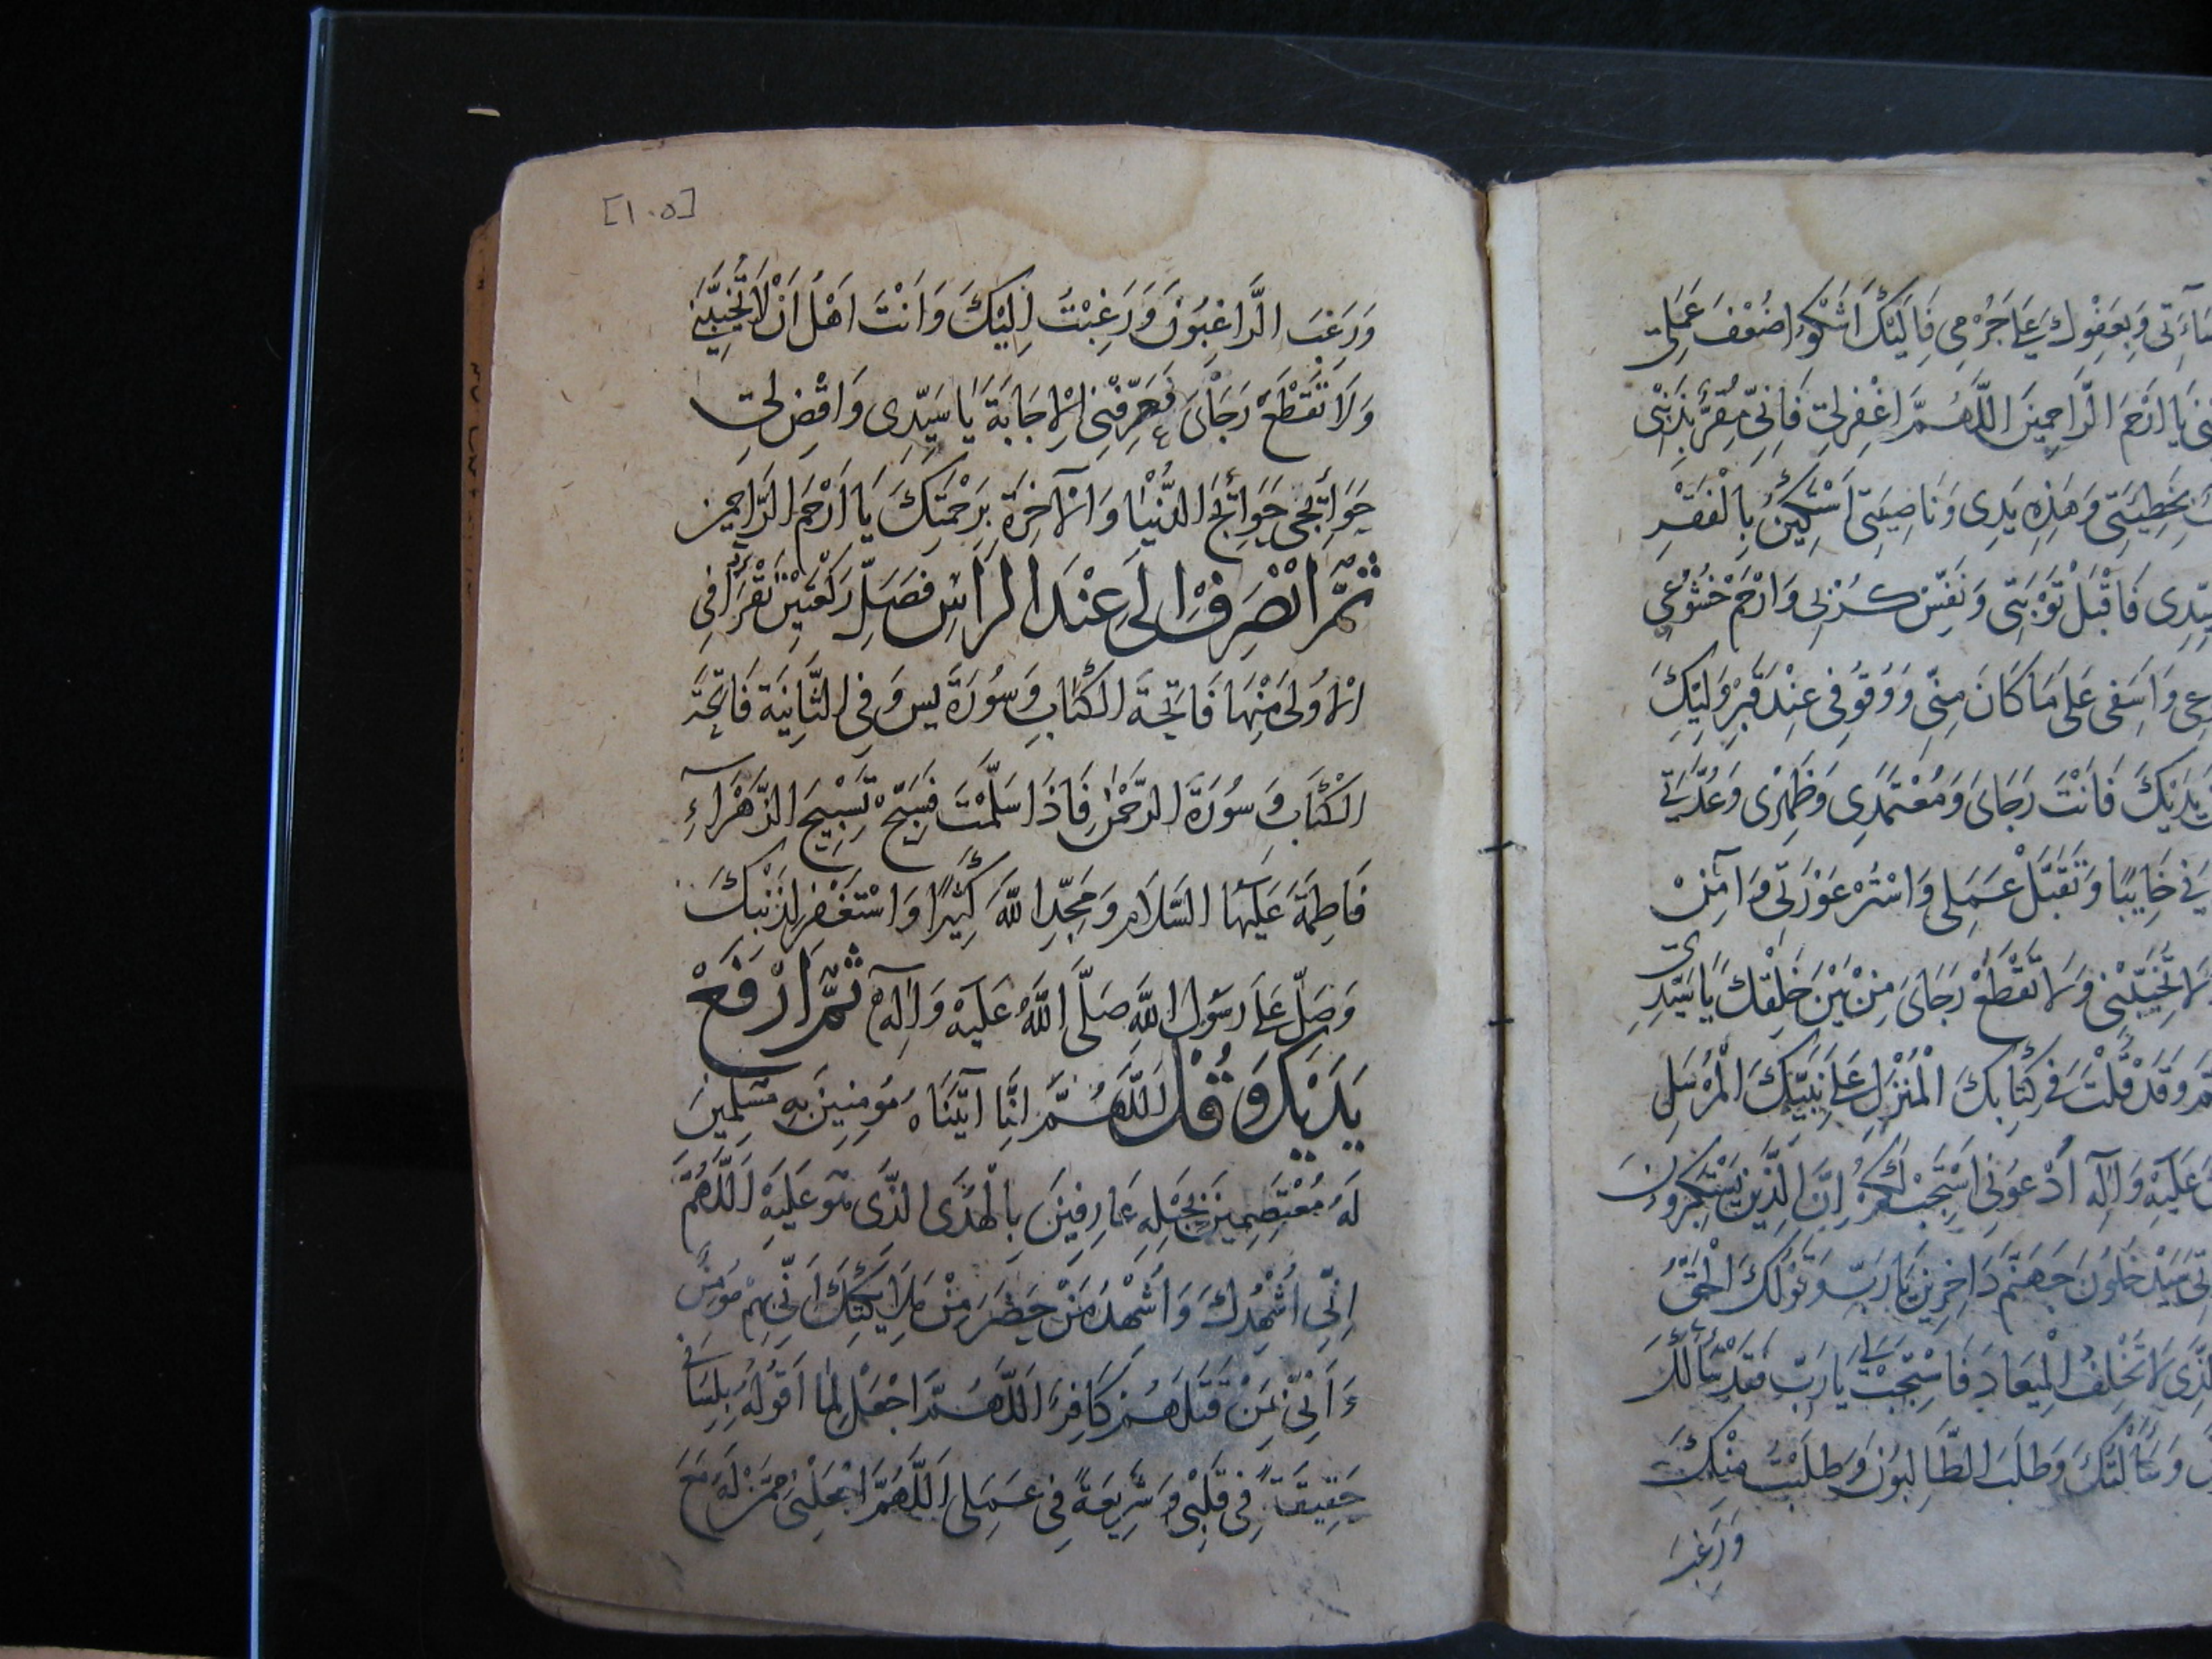 سَاءَتِي وَبِعَفْوِكَ عَلَى جُرْمِي فَاِلَيْكَ اَشْكُو ضُعْفَ عَمَلِي
يَا اَرْحَمَ الرَّاحِمِينَ اَللَّهُمَّ اغْفِرْلِي فَاِنِّي مُقِرٌّ بِذَنْبِي
بِخَطِيئَتِي وَهٰذِهِ يَدِي وَنَاصِيَتِي اَسْتَكِينُ بِالْفَقْرِ
سَيِّدِي فَاقْبَلْ تَوْبَتِي وَنَفِّسْ كُرَبِي وَارْحَمْ خُشُوعِي
وَاَسَفِي عَلَى مَا كَانَ مِنِّي وَوُقُوفِي عِنْدَ قَبْرِ وَلِيِّكَ
يَدَيْكَ فَاَنْتَ رَجَائِي وَمُعْتَمَدِي وَظَهْرِي وَعُدَّتِي
خَايِبًا وَتَقَبَّلْ عَمَلِي وَاسْتُرْ عَوْرَتِي وَآمِنْ
لَا تُخَيِّبْنِي وَلَا تَقْطَعْ رَجَائِي مِنْ بَيْنِ خَلْقِكَ يَا سَيِّدِي
وَقَدْ قُلْتَ فِي كِتَابِكَ الْمُنْزَلِ عَلَى نَبِيِّكَ الْمُرْسَلِ
عَلَيْهِ وَآلِهِ اُدْعُونِي اَسْتَجِبْ لَكُمْ اِنَّ الَّذِينَ يَسْتَكْبِرُونَ
سَيَدْخُلُونَ جَهَنَّمَ دَاخِرِينَ يَا رَبِّ وَقَوْلُكَ الْحَقُّ
الَّذِي لَا تُخْلِفُ الْمِيعَادَ فَاسْتَجِبْ لِي يَا رَبِّ فَقَدْ سَأَلَكَ
وَسَأَلْتُكَ وَطَلَبَ الطَّالِبُونَ وَطَلَبْتُ مِنْكَ
وَرَغِبَ
[١٠٥]
وَرَغِبَ الرَّاغِبُونَ وَرَغِبْتُ اِلَيْكَ وَاَنْتَ اَهْلُ اَنْ لَا تُخَيِّبَنِي
وَلَا تَقْطَعْ رَجَائِي فَعَرِّفْنِي الْاِجَابَةَ يَا سَيِّدِي وَاقْضِ لِي
حَوَائِجِي حَوَائِجَ الدُّنْيَا وَالْآخِرَةِ بِرَحْمَتِكَ يَا اَرْحَمَ الرَّاحِمِينَ
ثُمَّ انْصَرِفْ اِلَى عِنْدَ الرَّأسِ فَصَلِّ رَكْعَتَيْنِ تَقْرَأُ فِي
الْاُولَى مِنْهَا فَاتِحَةَ الْكِتَابِ وَسُورَةَ يس وَفِي الثَّانِيَةِ فَاتِحَةَ
الْكِتَابِ وَسُورَةَ الرَّحْمٰنِ فَاِذَا سَلَّمْتَ فَسَبِّحْ تَسْبِيحَ الزَّهْرَاءِ
فَاطِمَةَ عَلَيْهَا السَّلَامُ وَمَجِّدِ اللّٰهَ كَثِيرًا وَاسْتَغْفِرْ لِذَنْبِكَ
وَصَلِّ عَلَى رَسُولِ اللّٰهِ صَلَّى اللّٰهُ عَلَيْهِ وَآلِهِ ثُمَّ ارْفَعْ
يَدَيْكَ وَقُلْ اَللّٰهُمَّ اِنَّا آتَيْنَاهُ مُؤمِنِينَ بِهِ مُسَلِّمِينَ
لَهُ مُعْتَصِمِينَ بِحَبْلِهِ عَارِفِينَ بِالْهُدَى الَّذِي هُوَ عَلَيْهِ اَللّٰهُمَّ
اِنِّي اُشْهِدُكَ وَاُشْهِدُ مَنْ حَضَرَ مِنْ مَلَائِكَتِكَ اَنِّي بِهِمْ مُؤمِنٌ
وَاَنِّي بِمَنْ قَتَلَهُمْ كَافِرٌ اَللّٰهُمَّ اجْعَلْ لِمَا اَقُولُهُ بِلِسَانِي
حَقِيقَةً فِي قَلْبِي وَشَرِيعَةً فِي عَمَلِي اَللّٰهُمَّ اجْعَلْنِي مِمَّنْ لَهُ مَعَ